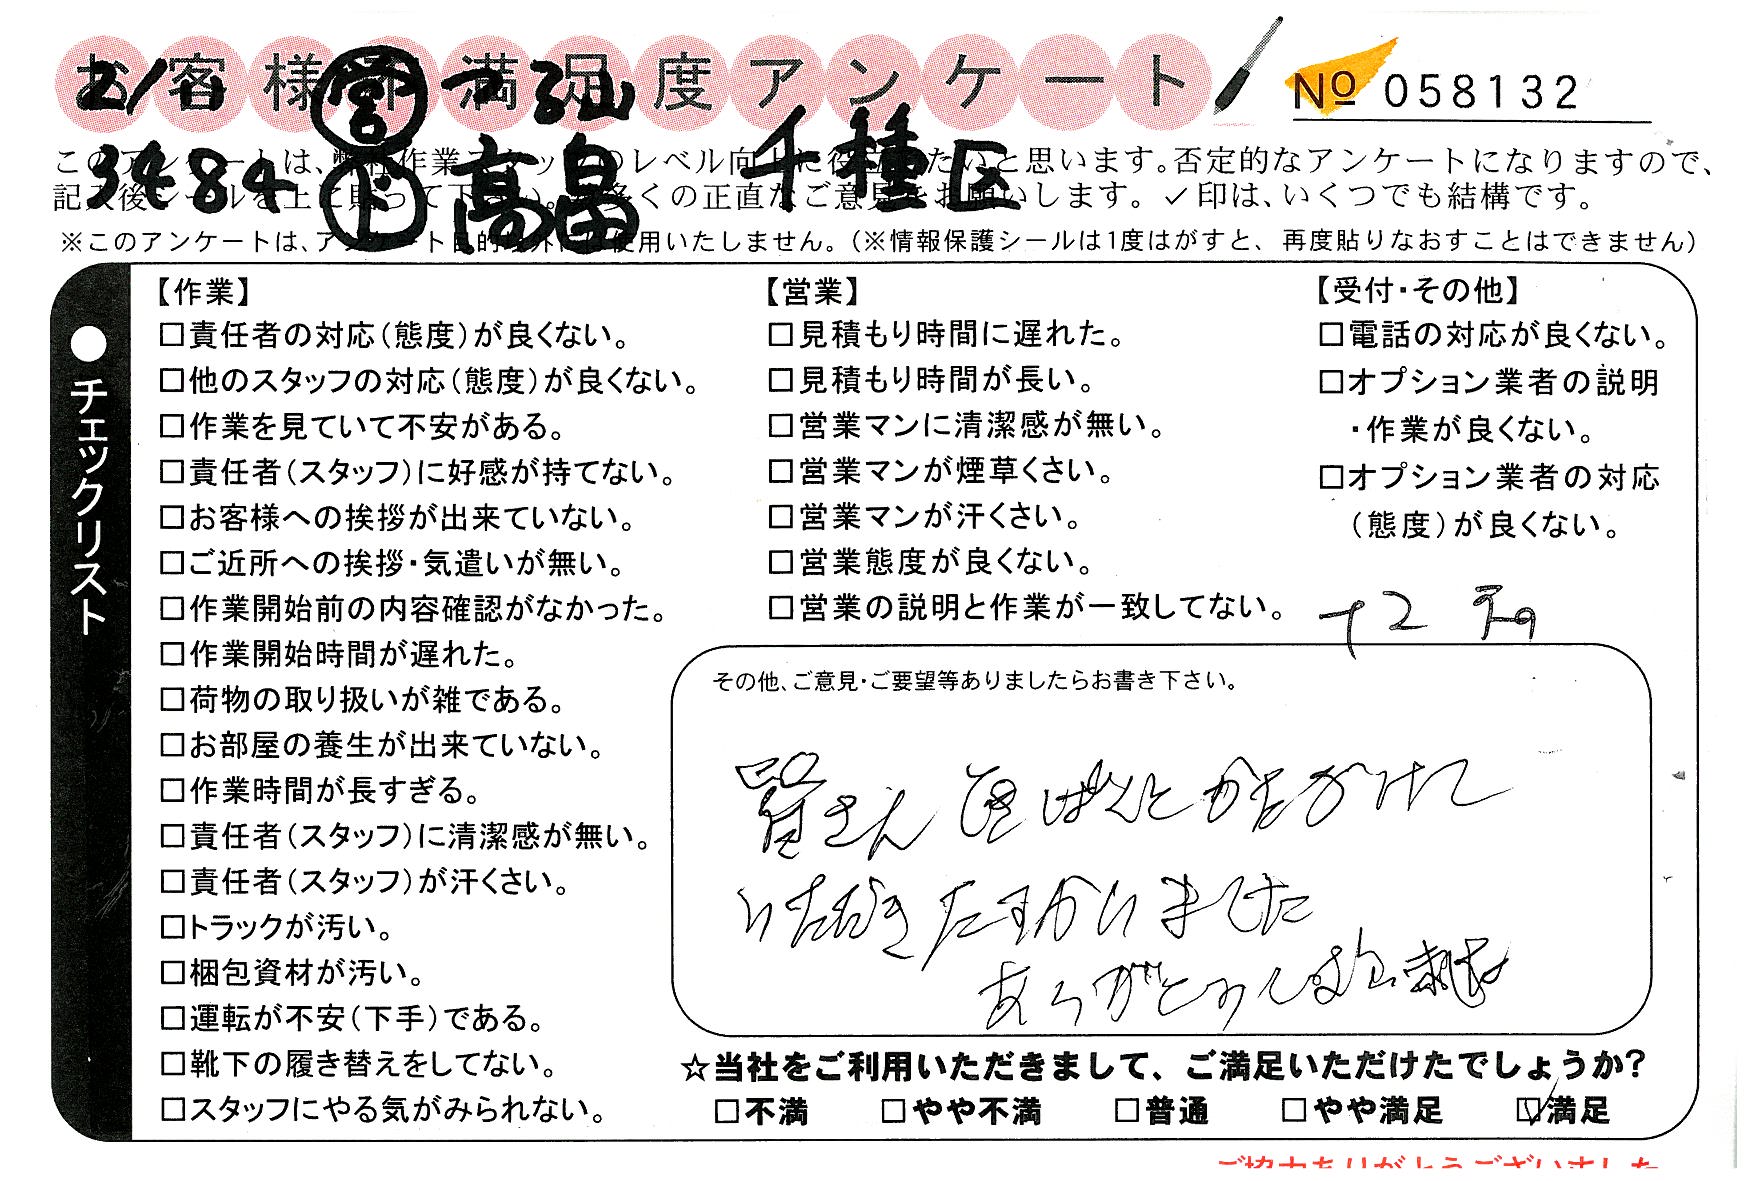 お客様作業満足度アンケート
No 058132
2/1 営 つる山
3484 ド 高畠 千種区
このアンケートは、弊社作業スタッフのレベル向上に役立てたいと思います。否定的なアンケートになりますので、
記入後シールを上に貼って下さい。数多くの正直なご意見をお願いします。✓印は、いくつでも結構です。
※このアンケートは、アンケート目的以外には使用いたしません。（※情報保護シールは1度はがすと、再度貼りなおすことはできません）
●チェックリスト
【作業】
□責任者の対応（態度）が良くない。
□他のスタッフの対応（態度）が良くない。
□作業を見ていて不安がある。
□責任者（スタッフ）に好感が持てない。
□お客様への挨拶が出来ていない。
□ご近所への挨拶・気遣いが無い。
□作業開始前の内容確認がなかった。
□作業開始時間が遅れた。
□荷物の取り扱いが雑である。
□お部屋の養生が出来ていない。
□作業時間が長すぎる。
□責任者（スタッフ）に清潔感が無い。
□責任者（スタッフ）が汗くさい。
□トラックが汚い。
□梱包資材が汚い。
□運転が不安（下手）である。
□靴下の履き替えをしてない。
□スタッフにやる気がみられない。
【営業】
□見積もり時間に遅れた。
□見積もり時間が長い。
□営業マンに清潔感が無い。
□営業マンが煙草くさい。
□営業マンが汗くさい。
□営業態度が良くない。
□営業の説明と作業が一致してない。
【受付・その他】
□電話の対応が良くない。
□オプション業者の説明
・作業が良くない。
□オプション業者の対応
（態度）が良くない。
その他、ご意見・ご要望等ありましたらお書き下さい。
皆さん てきぱきとかたづけて
いただき たすかりました
ありがとうございました
☆当社をご利用いただきまして、ご満足いただけたでしょうか？
□不満 □やや不満 □普通 □やや満足 ☑満足
ご協力ありがとうございました